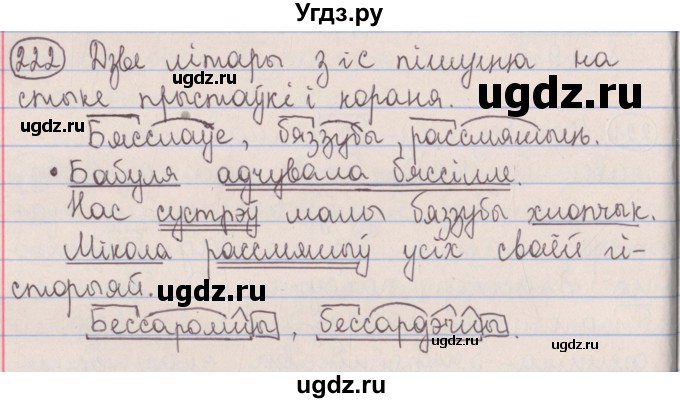 Угдз.ру
222 Дзве літары з і с пішуцца на
стыке прыстаўкі і кораня.
Бясслаўе, бяззубы, рассмяшыць.
• Бабуля адчувала бяссілле.
Нас сустрэў малы бяззубы хлопчык.
Мікола рассмяшыў усіх сваёй гі-
сторыяй.
Бессаромны, бессардэчны.
ugdz.ru
ugdz.ru
ugdz.ru
ugdz.ru
ugdz.ru
ugdz.ru
ugdz.ru
ugdz.ru